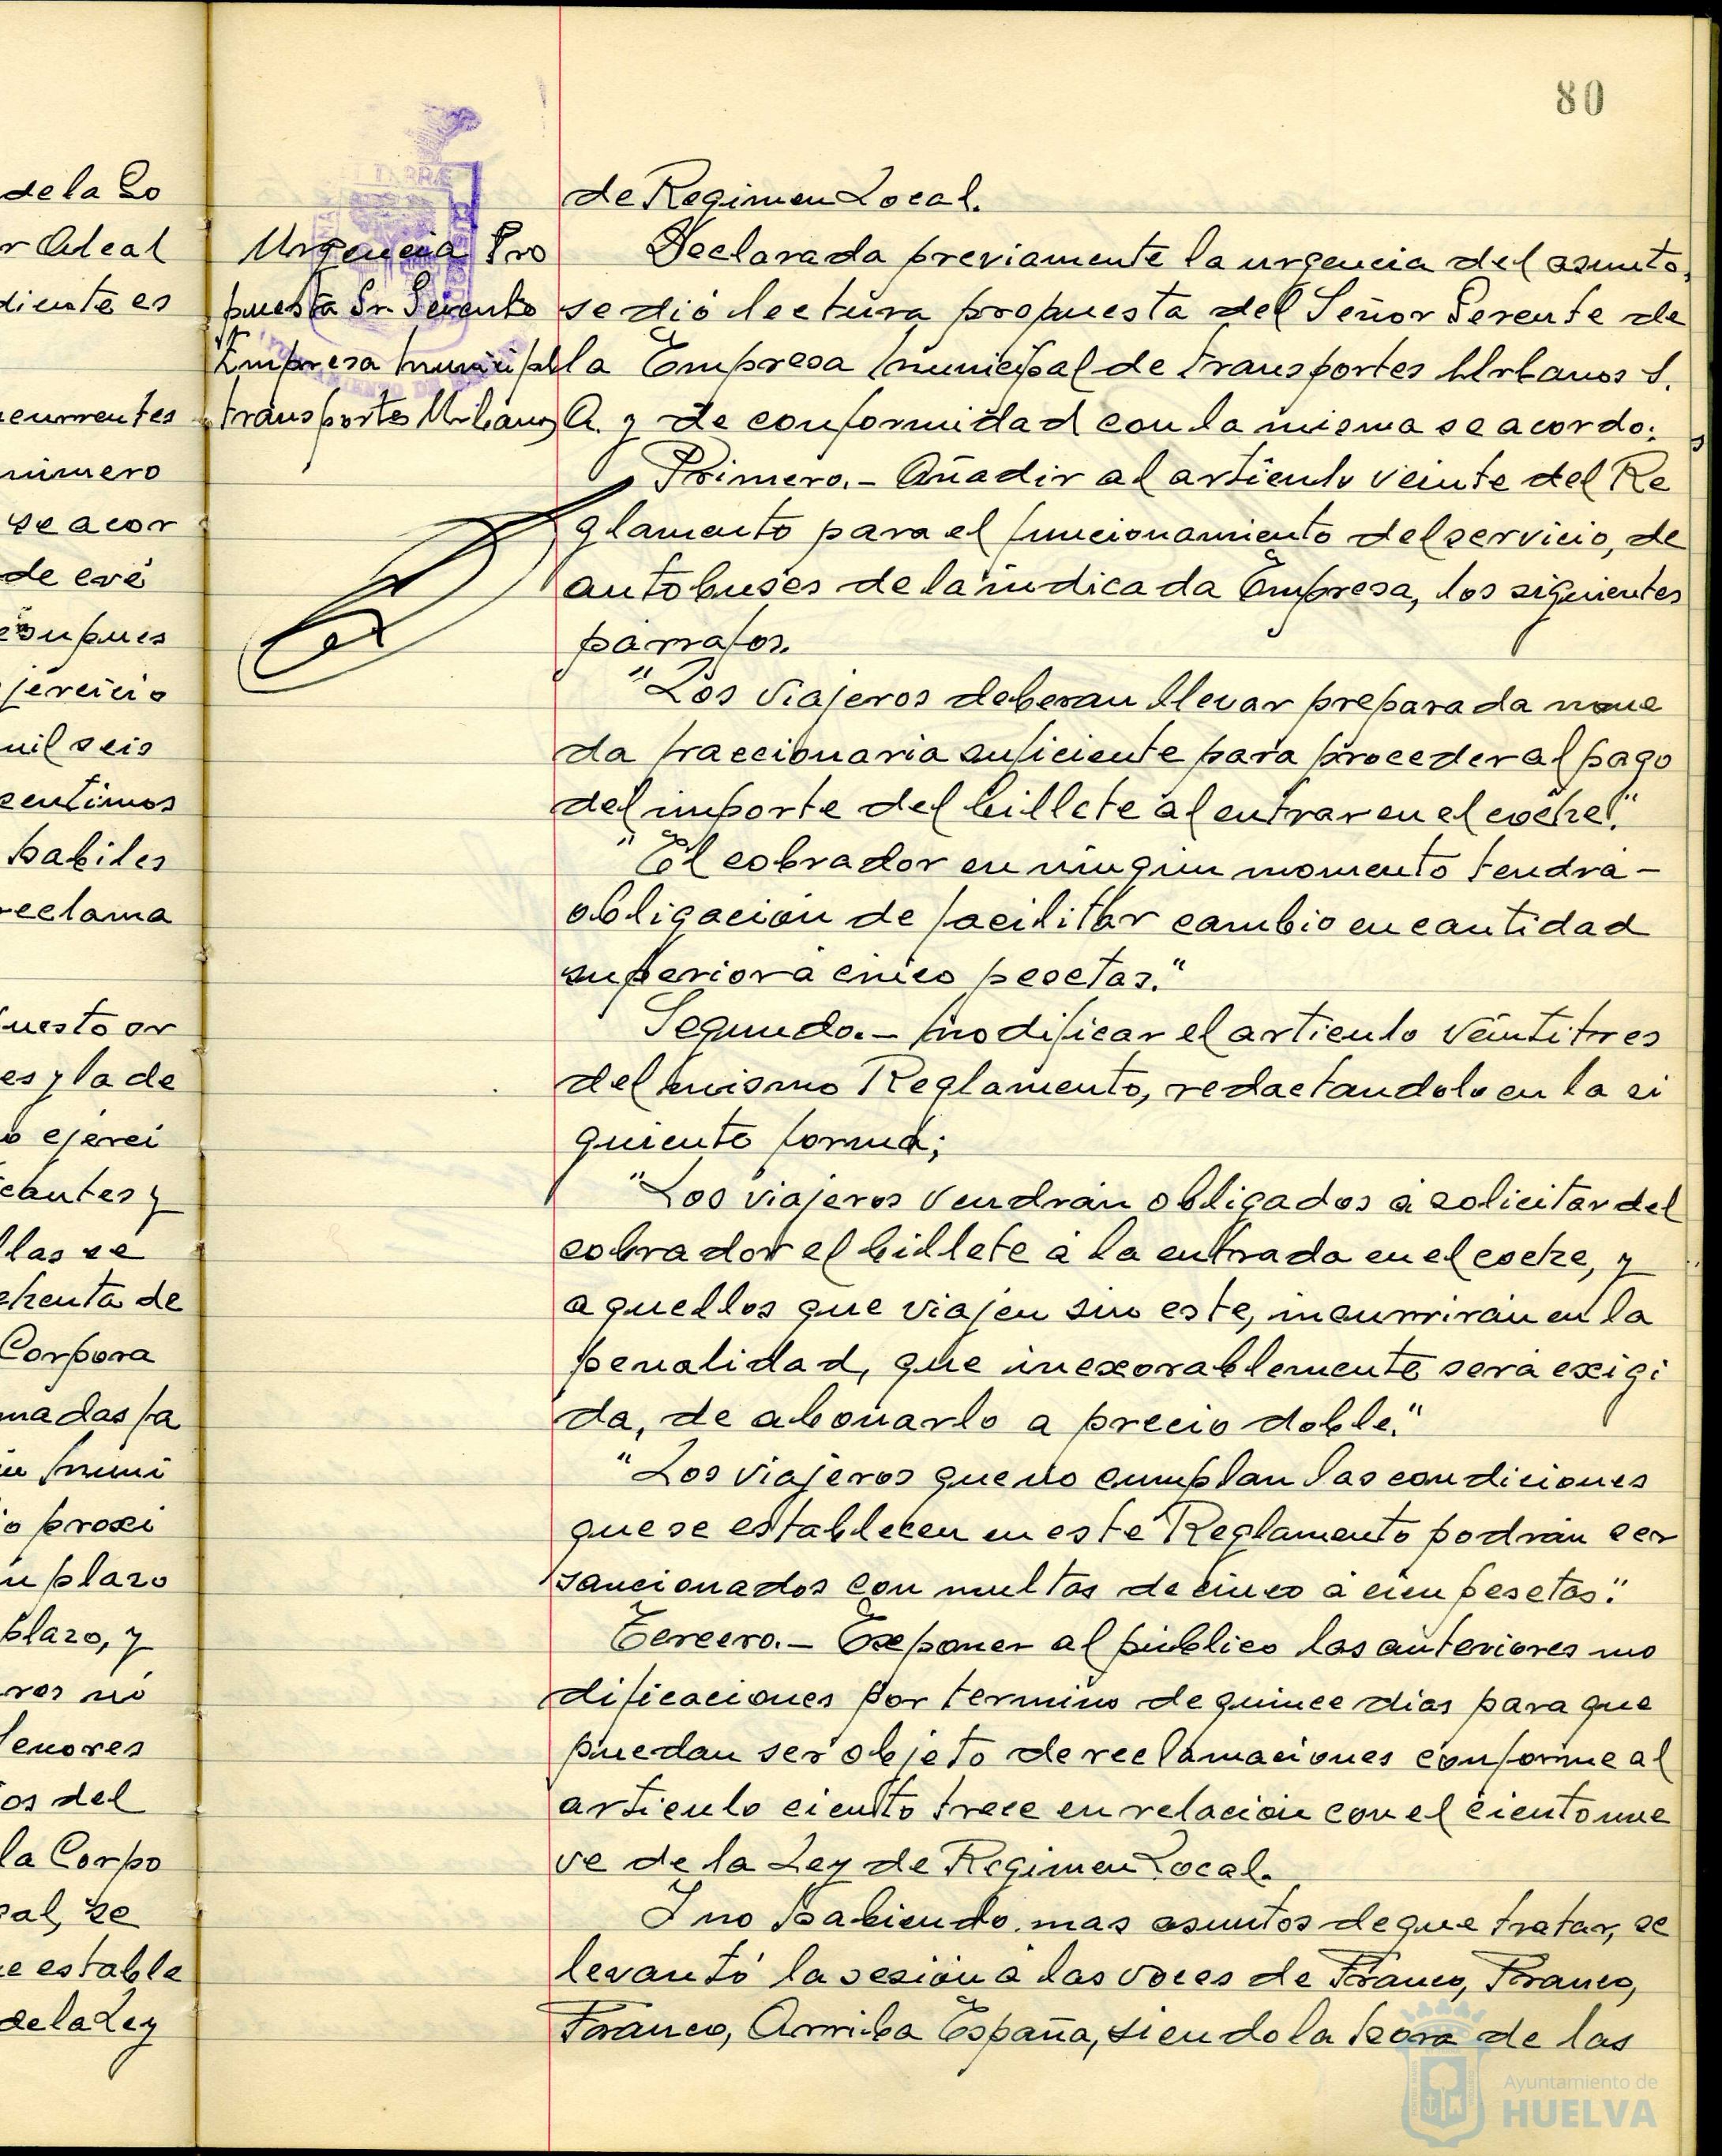 80
de la Co
r Alcal
diente es
currentes
número
se acor
de evé
supues
jercicio
mil seis
centimos
habiles
reclama
uesto or
es y la de
o ejerci
cantes y
llas se
chenta de
Corpora
madas fa
muni
o proxi
n plazo
plazo, y
ros nó
Señores
os del
la Corpo
cal, se
e estable
de la Ley
Urgencia Pro
puesta Sr. Gerente
Empresa Municipal
transportes Urbanos
de Regimen Local.
Declarada previamente la urgencia del asunto,
se dió lectura propuesta del Señor Gerente de
la Empresa Municipal de transportes Urbanos S.
A. y de conformidad con la misma se acordo:
Primero.- Añadir al articulo veinte del Re
glamento para el funcionamiento del servicio, de
autobuses de la indicada Empresa, los siguientes
párrafos.
"Los viajeros deberan llevar preparada mone
da fraccionaria suficiente para proceder al pago
del importe del billete al entrar en el coche."
"El cobrador en ningun momento tendrá-
obligación de facilitar cambio en cantidad
superior a cinco pesetas."
Segundo.- Modificar el articulo veintitres
del mismo Reglamento, redactandolo en la si
guiente forma;
"Los viajeros vendrán obligados á solicitar del
cobrador el billete a la entrada en el coche, y
aquellos que viajen sin este, incurrirán en la
penalidad, que inexorablemente será exigi
da, de abonarlo a precio doble."
"Los viajeros que no cumplan las condiciones
que se establecen en este Reglamento podrán ser
sancionados con multas de cinco á cien pesetas."
Tercero.- Exponer al público las anteriores mo
dificaciones por termino de quince dias para que
puedan ser objeto de reclamaciones conforme al
articulo ciento trece en relación con el ciento nue
ve de la Ley de Regimen Local.
Y no habiendo mas asuntos de que tratar, se
levantó la sesión á las voces de Franco, Franco,
Franco, Arriba España, siendo la hora de las
Ayuntamiento de
HUELVA